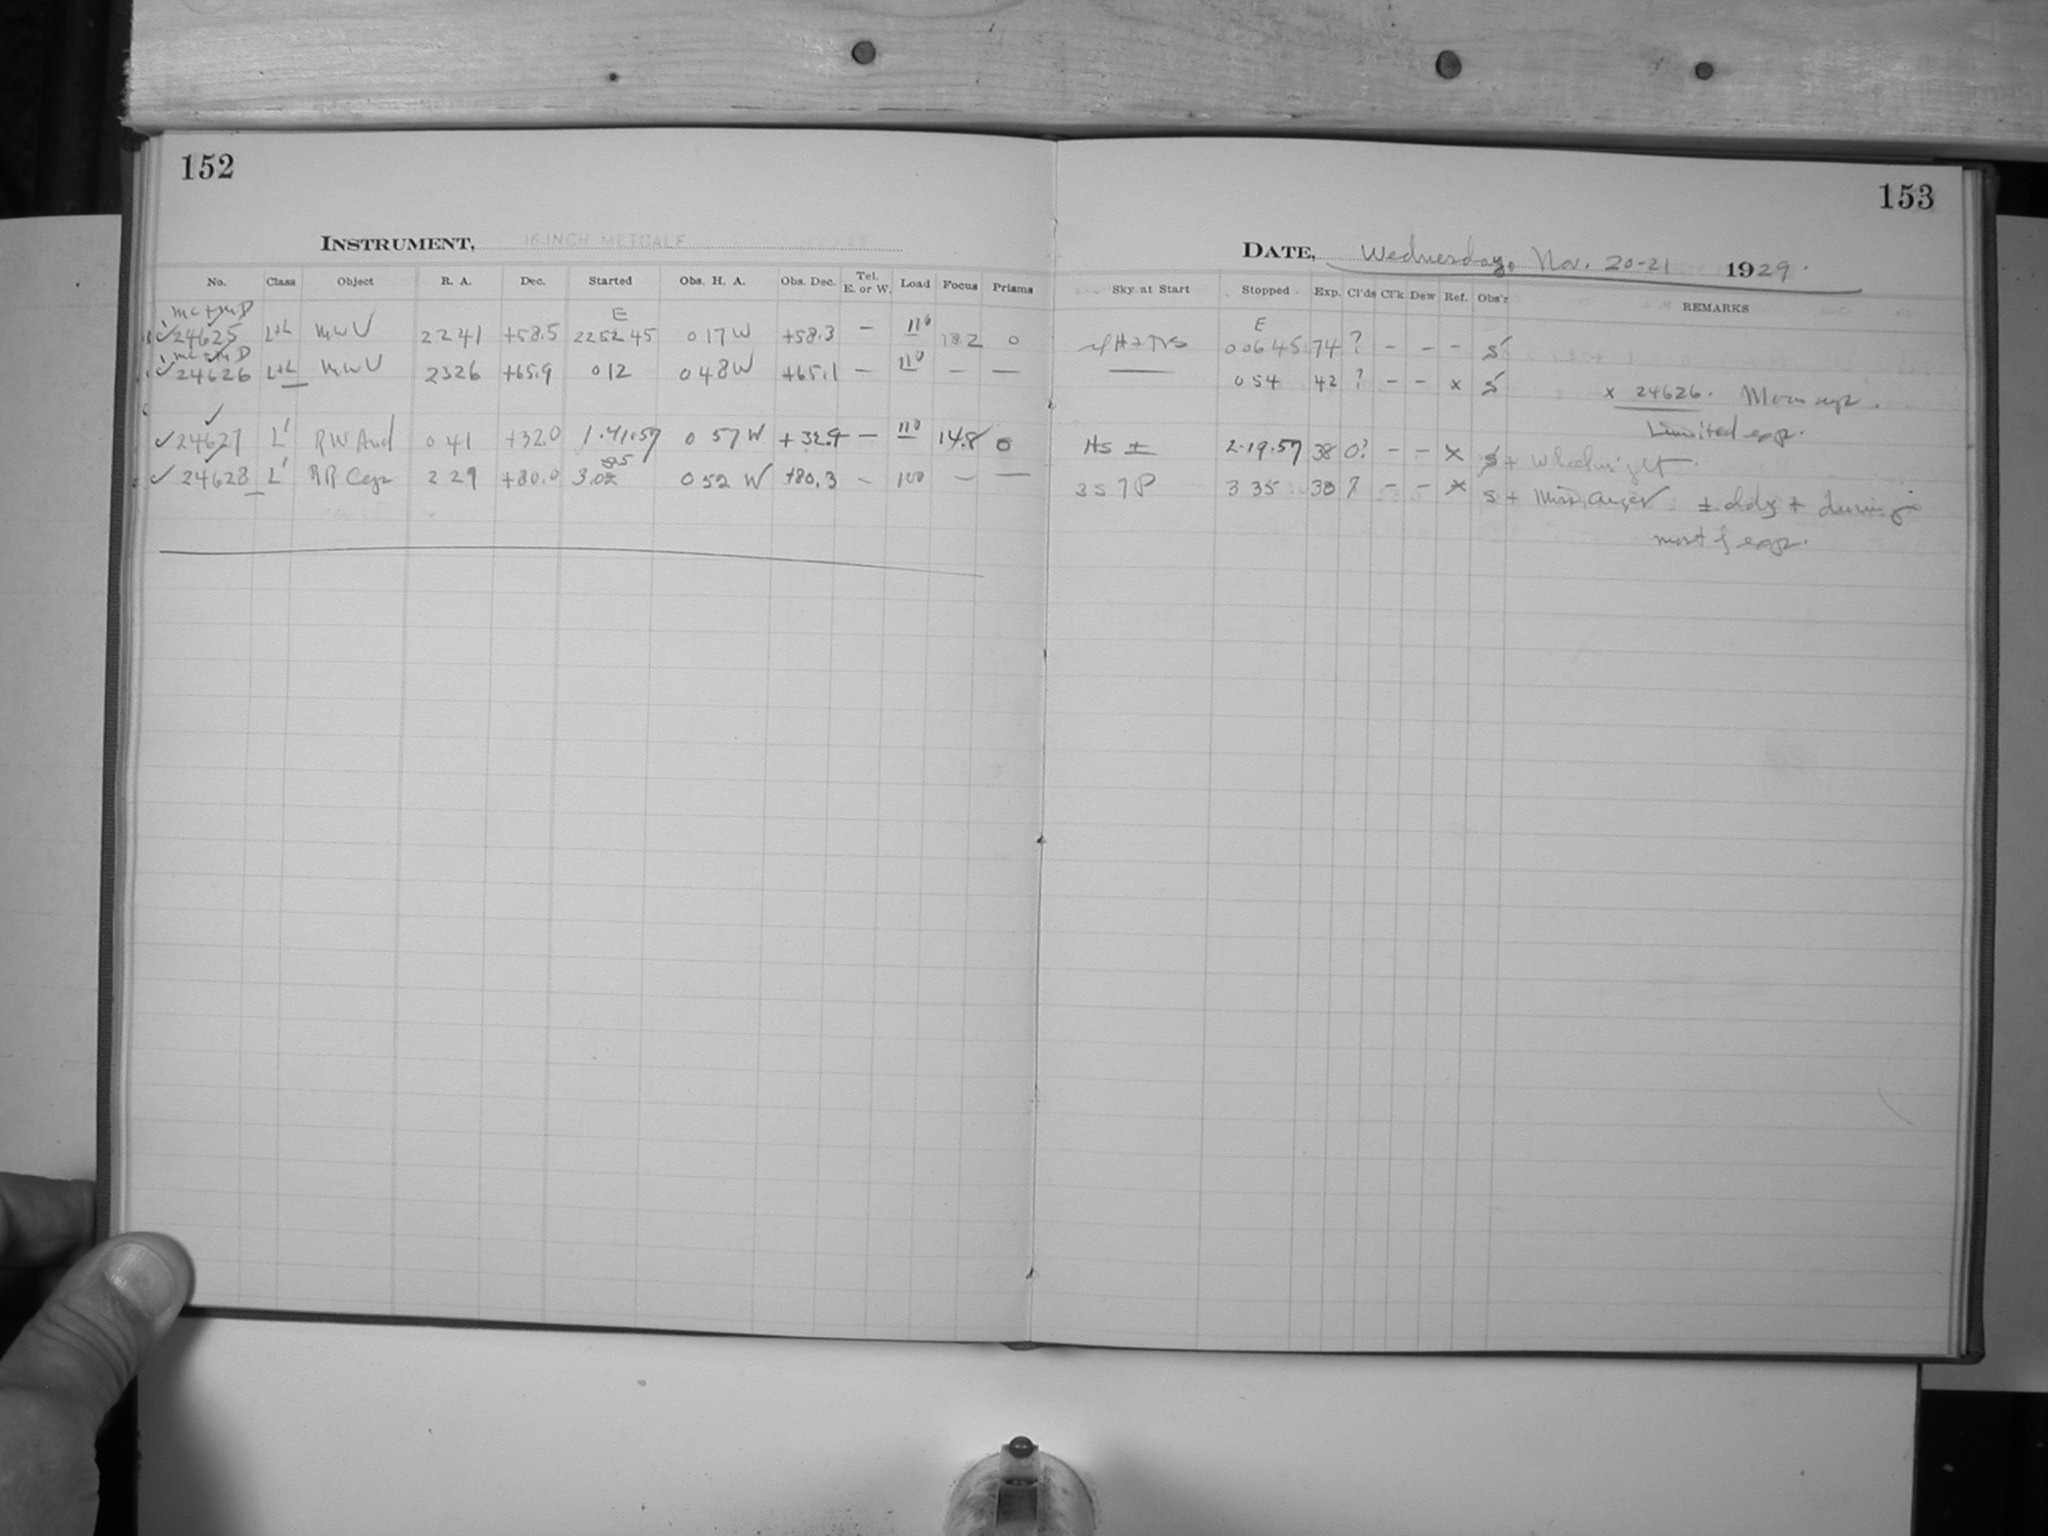 152
INSTRUMENT, 16 INCH METCALF
No. Class Object R. A. Dec. Started Obs. H. A. Obs. Dec. Tel. E. or W. Load Focus Prisms
mc + m D E
24625 L+L MWV 22 41 +58.5 22 52 45 0 17 W +58.3 — 110 0
mc + m D
24626 L+L MWV 23 26 +65.9 0 12 0 48 W +65.1 — 110 — —
24627 L' RW And 0 41 +32.0 1.41.57 0 57 W — 110 14.8 0
24628 L' RR Cep 2 29 +80.0 3.05 0 52 W +80.3 — 100 — —
153
DATE, Wednesday, Nov. 20-21 1929.
Sky at Start Stopped Exp. Cl'ds Cl'k Dew Ref. Obs'r REMARKS
E
0 06 45 74 ? — — — S
0 54 42 ? — — x S x 24626. Moon up.
Limited exp.
HS ± 2.19.57 38 0? — — x S + Wheelwright
3 S 7 P 3 35 30 ? — — x S + Miss ± cldy + during
most of exp.